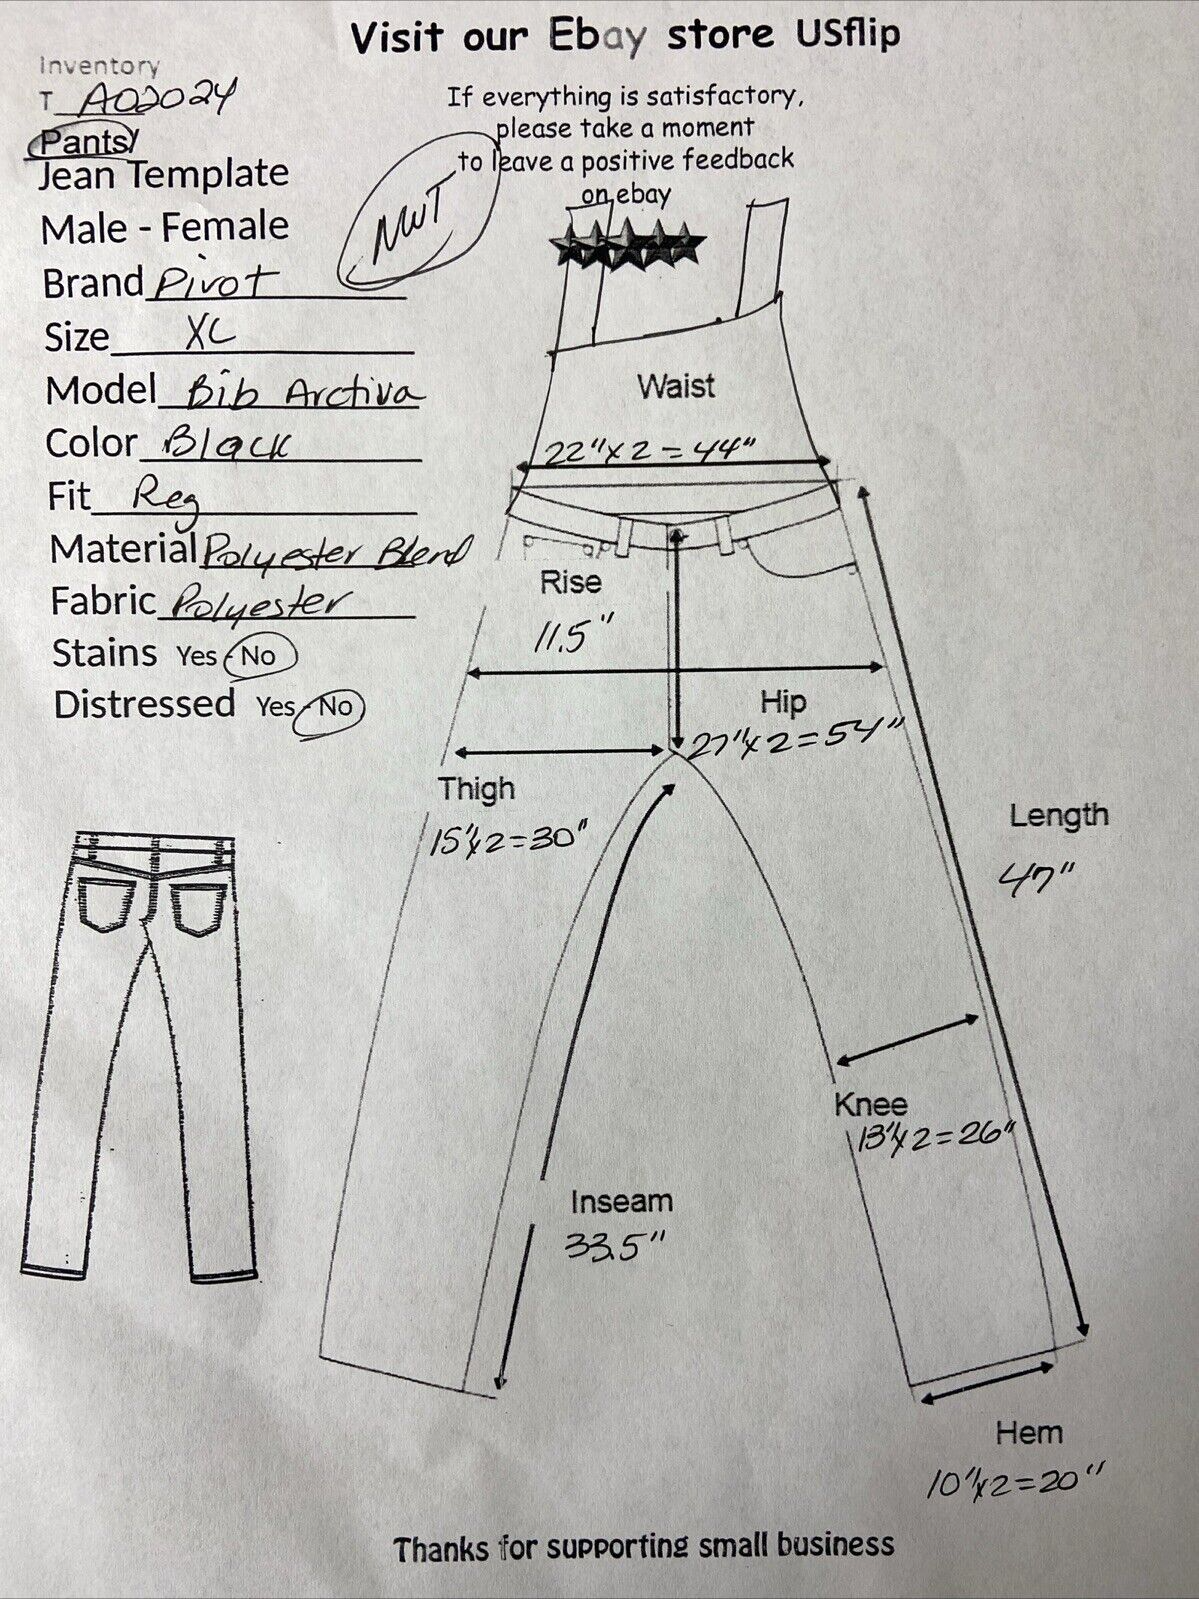 Visit our Ebay store USflip
Inventory
T A02024
Pants/
Jean Template
Male - Female
Brand Pivot
Size XL
Model Bib Arctiva
Color Black
Fit Reg
Material Polyester Blend
Fabric Polyester
Stains Yes - No
Distressed Yes - No
If everything is satisfactory,
please take a moment
to leave a positive feedback
on ebay
NWT
Waist
22" x 2 = 44"
Rise
11.5"
Hip
27" x 2 = 54"
Thigh
15" x 2 = 30"
Length
47"
Knee
13" x 2 = 26"
Inseam
33.5"
Hem
10" x 2 = 20"
Thanks for supporting small business